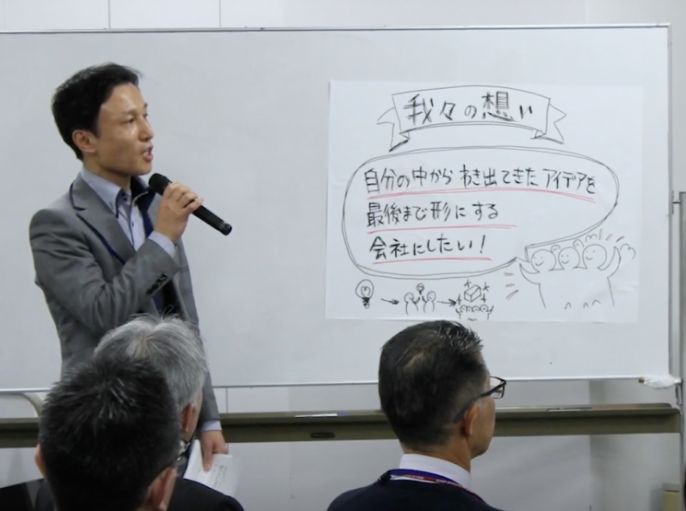 我々の想い
自分の中からわき出てきたアイデアを
最後まで形にする
会社にしたい!